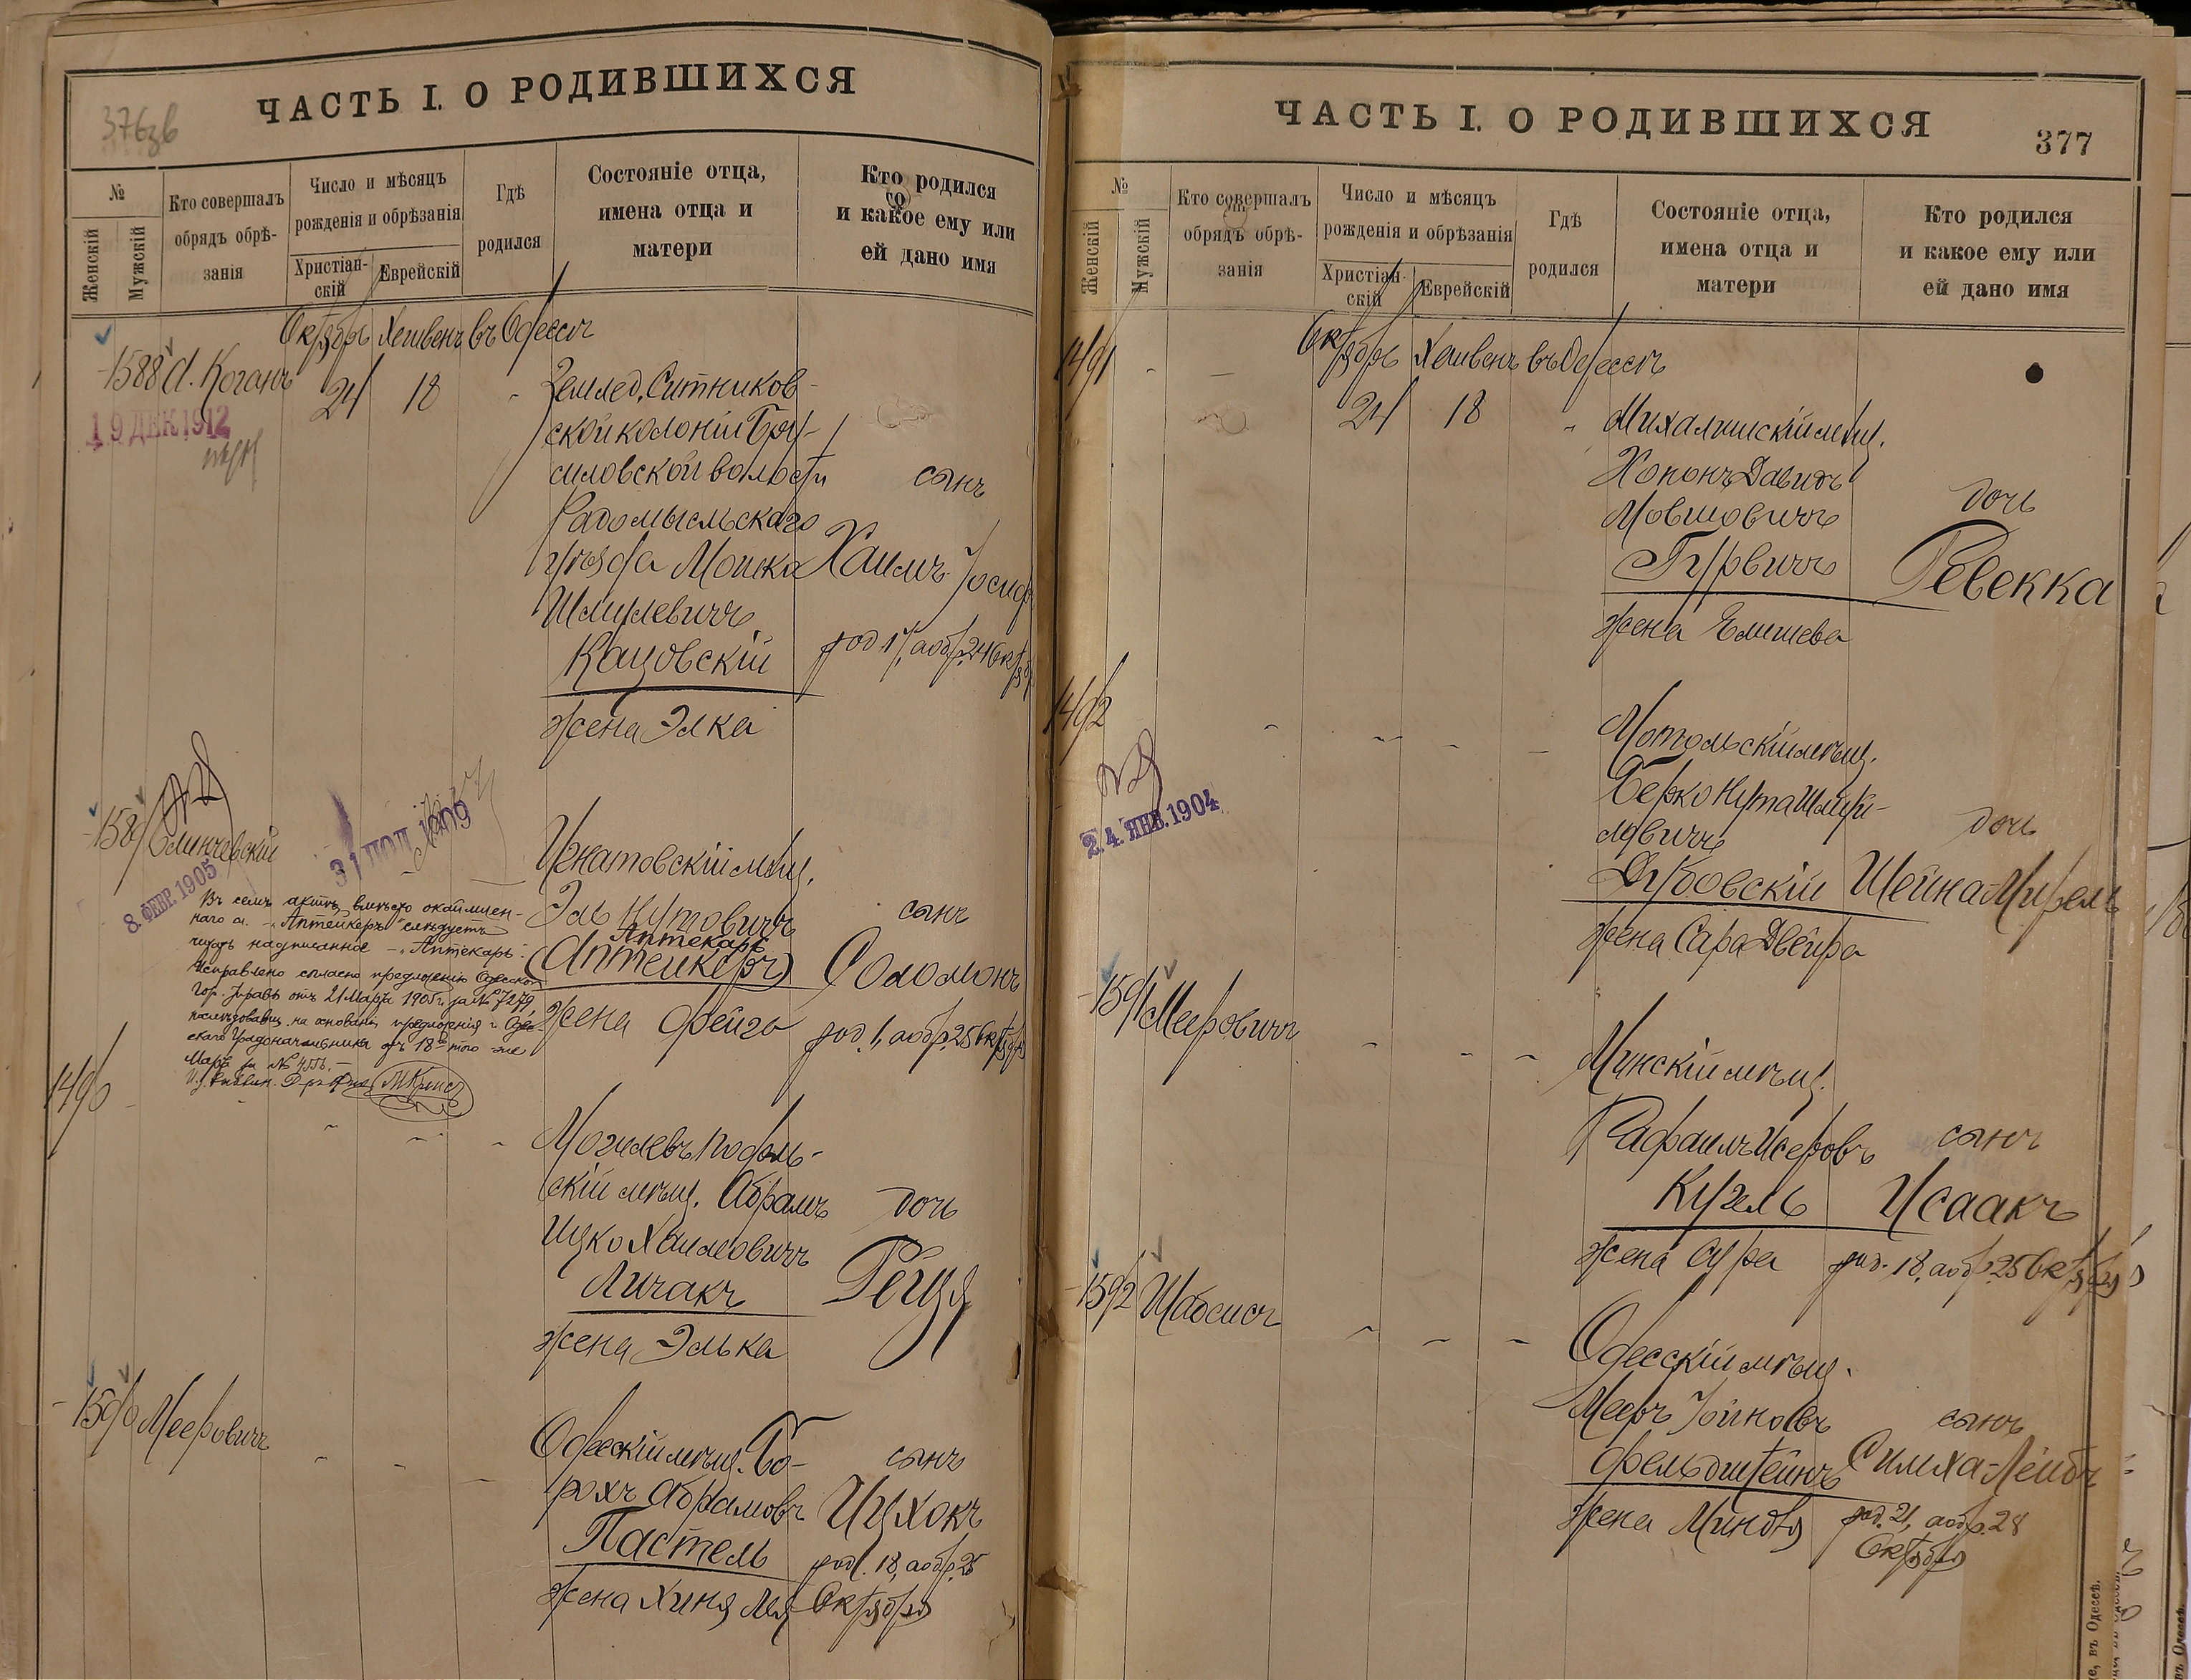 ЧАСТЬ I. О РОДИВШИХСЯ
376
№
Женскій
Мужскій
Кто совершалъ обрядъ обрѣ-
занія
Число и мѣсяцъ
рожденія и обрѣзанія
Христіан-
скій
Еврейскій
Гдѣ
родился
Состояніе отца,
имена отца и
матери
Кто родился
и какое ему или
ей дано имя
Октябрь Хешвенъ въ Одессѣ
1588 Коганъ 24 18
19 ДЕК 1912
Землед. Ситников-
ской колоніи Бру-
силовской волости
Радомысльскаго
уѣзда Мошко
Шмулевичъ
Кацовскій
жена Элка
сынъ
Хаимъ Іосифъ
род 17, а обр. 24 Октяб
1589 Олинчевскій
8. ФЕВР. 1905
31 1909
Въ семъ актѣ, вмѣсто окаймлен-
наго сл. - "Аптейкеръ" слѣдуетъ
читать надписанное - "Аптекарь".
Исправлено согласно предложенію Одесской
Гор. Управы отъ 21 Марта 1905 г. за № 7279,
послѣдовавш. на основаніи предложенія г. Одес-
скаго Градоначальника отъ 18го того же
Марта за №
Игнатовскій мѣщ.
Эль Нутовичъ
Аптекарь
(Аптейкеръ)
жена Фейга
сынъ
Соломонъ
род. 1, а обр. 25 Октября
1490
Могилевъ Подоль-
скій мѣщ. Абрамъ
Ицко Хаимовичъ
Личакъ
жена Элька
дочь
Рейзя
1590 Мееровичъ
Одесскій мѣщ. Бо-
рохъ Абрамовъ
Пастель
жена Хиня Лея
сынъ
Ицхокъ
род. 18, а обр. 25
Октября
ЧАСТЬ I. О РОДИВШИХСЯ
377
№
Женскій
Мужскій
Кто совершалъ
обрядъ обрѣ-
занія
Число и мѣсяцъ
рожденія и обрѣзанія
Христіан-
скій
Еврейскій
Гдѣ
родился
Состояніе отца,
имена отца и
матери
Кто родился
и какое ему или
ей дано имя
Октябрь Хешвенъ въ Одессѣ
1491 24 18
Михалишскій мѣщ.
Хононъ Давидъ
Мовшовичъ
Гурвичъ
жена Елишева
дочь
Ревекка
1492
24 ЯНВ. 1904
Мотольскій мѣщ.
Берко Нута Шмуй-
ловичъ
Дубовскій
жена Сара Двейра
дочь
Шейна Мирель
1591 Мееровичъ
Минскій мѣщ.
Рафаилъ Исеровъ
Кугель
жена Сура
сынъ
Исаакъ
род. 18, а обр. 25 Октября
1592 Шабсисъ
Одесскій мѣщ.
Мееръ Іойновъ
Фельдштейнъ
жена Миндя
сынъ
Симха-Лейбъ
род. 21, а обр. 28
Октября
въ Одессѣ.